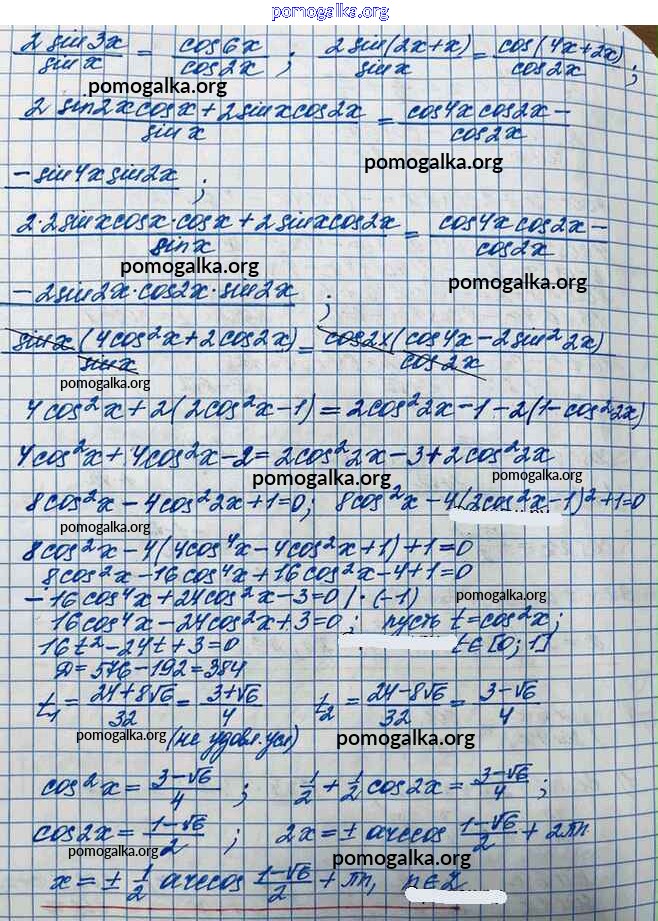 pomogalka.org
2 sin3x / sin x = cos6x / cos2x ; 2 sin(2x+x) / sin x = cos(4x+2x) / cos2x ;
pomogalka.org
2 sin2x cosx + 2 sinx cos2x / sin x = cos4x cos2x − / cos2x
pomogalka.org
− sin4x sin2x ;
2·2 sinx cosx · cosx + 2 sinx cos2x / sin x = cos4x cos2x − / cos2x
pomogalka.org
pomogalka.org
− 2 sin2x · cos2x · sin2x ;
sinx (4cos²x + 2 cos2x) / sinx = cos2x (cos4x − 2 sin² 2x) / cos2x
pomogalka.org
4cos²x + 2(2cos²x − 1) = 2cos²2x − 1 − 2(1 − cos²2x)
4cos²x + 4cos²x − 2 = 2cos²2x − 3 + 2cos²2x
pomogalka.org
pomogalka.org
8cos²x − 4cos²2x + 1 = 0 ; 8cos²x − 4(2cos²x − 1)² + 1 = 0
pomogalka.org
8cos²x − 4(4cos⁴x − 4cos²x + 1) + 1 = 0
8cos²x − 16cos⁴x + 16cos²x − 4 + 1 = 0
− 16cos⁴x + 24cos²x − 3 = 0 | · (−1)
pomogalka.org
16cos⁴x − 24cos²x + 3 = 0 ; пусть t = cos²x ;
16t² − 24t + 3 = 0 t ∈ [0; 1]
D = 576 − 192 = 384
t₁ = 24+8√6 / 32 = 3+√6 / 4 t₂ = 24−8√6 / 32 = 3−√6 / 4
pomogalka.org (не удовл. усл) pomogalka.org
cos²x = 3−√6 / 4 ; 1/2 + 1/2 cos2x = 3−√6 / 4 ;
cos2x = 1−√6 / 2 ; 2x = ± arccos 1−√6 / 2 + 2πn
pomogalka.org
pomogalka.org
x = ± 1/2 arccos 1−√6 / 2 + πn, n ∈ Z